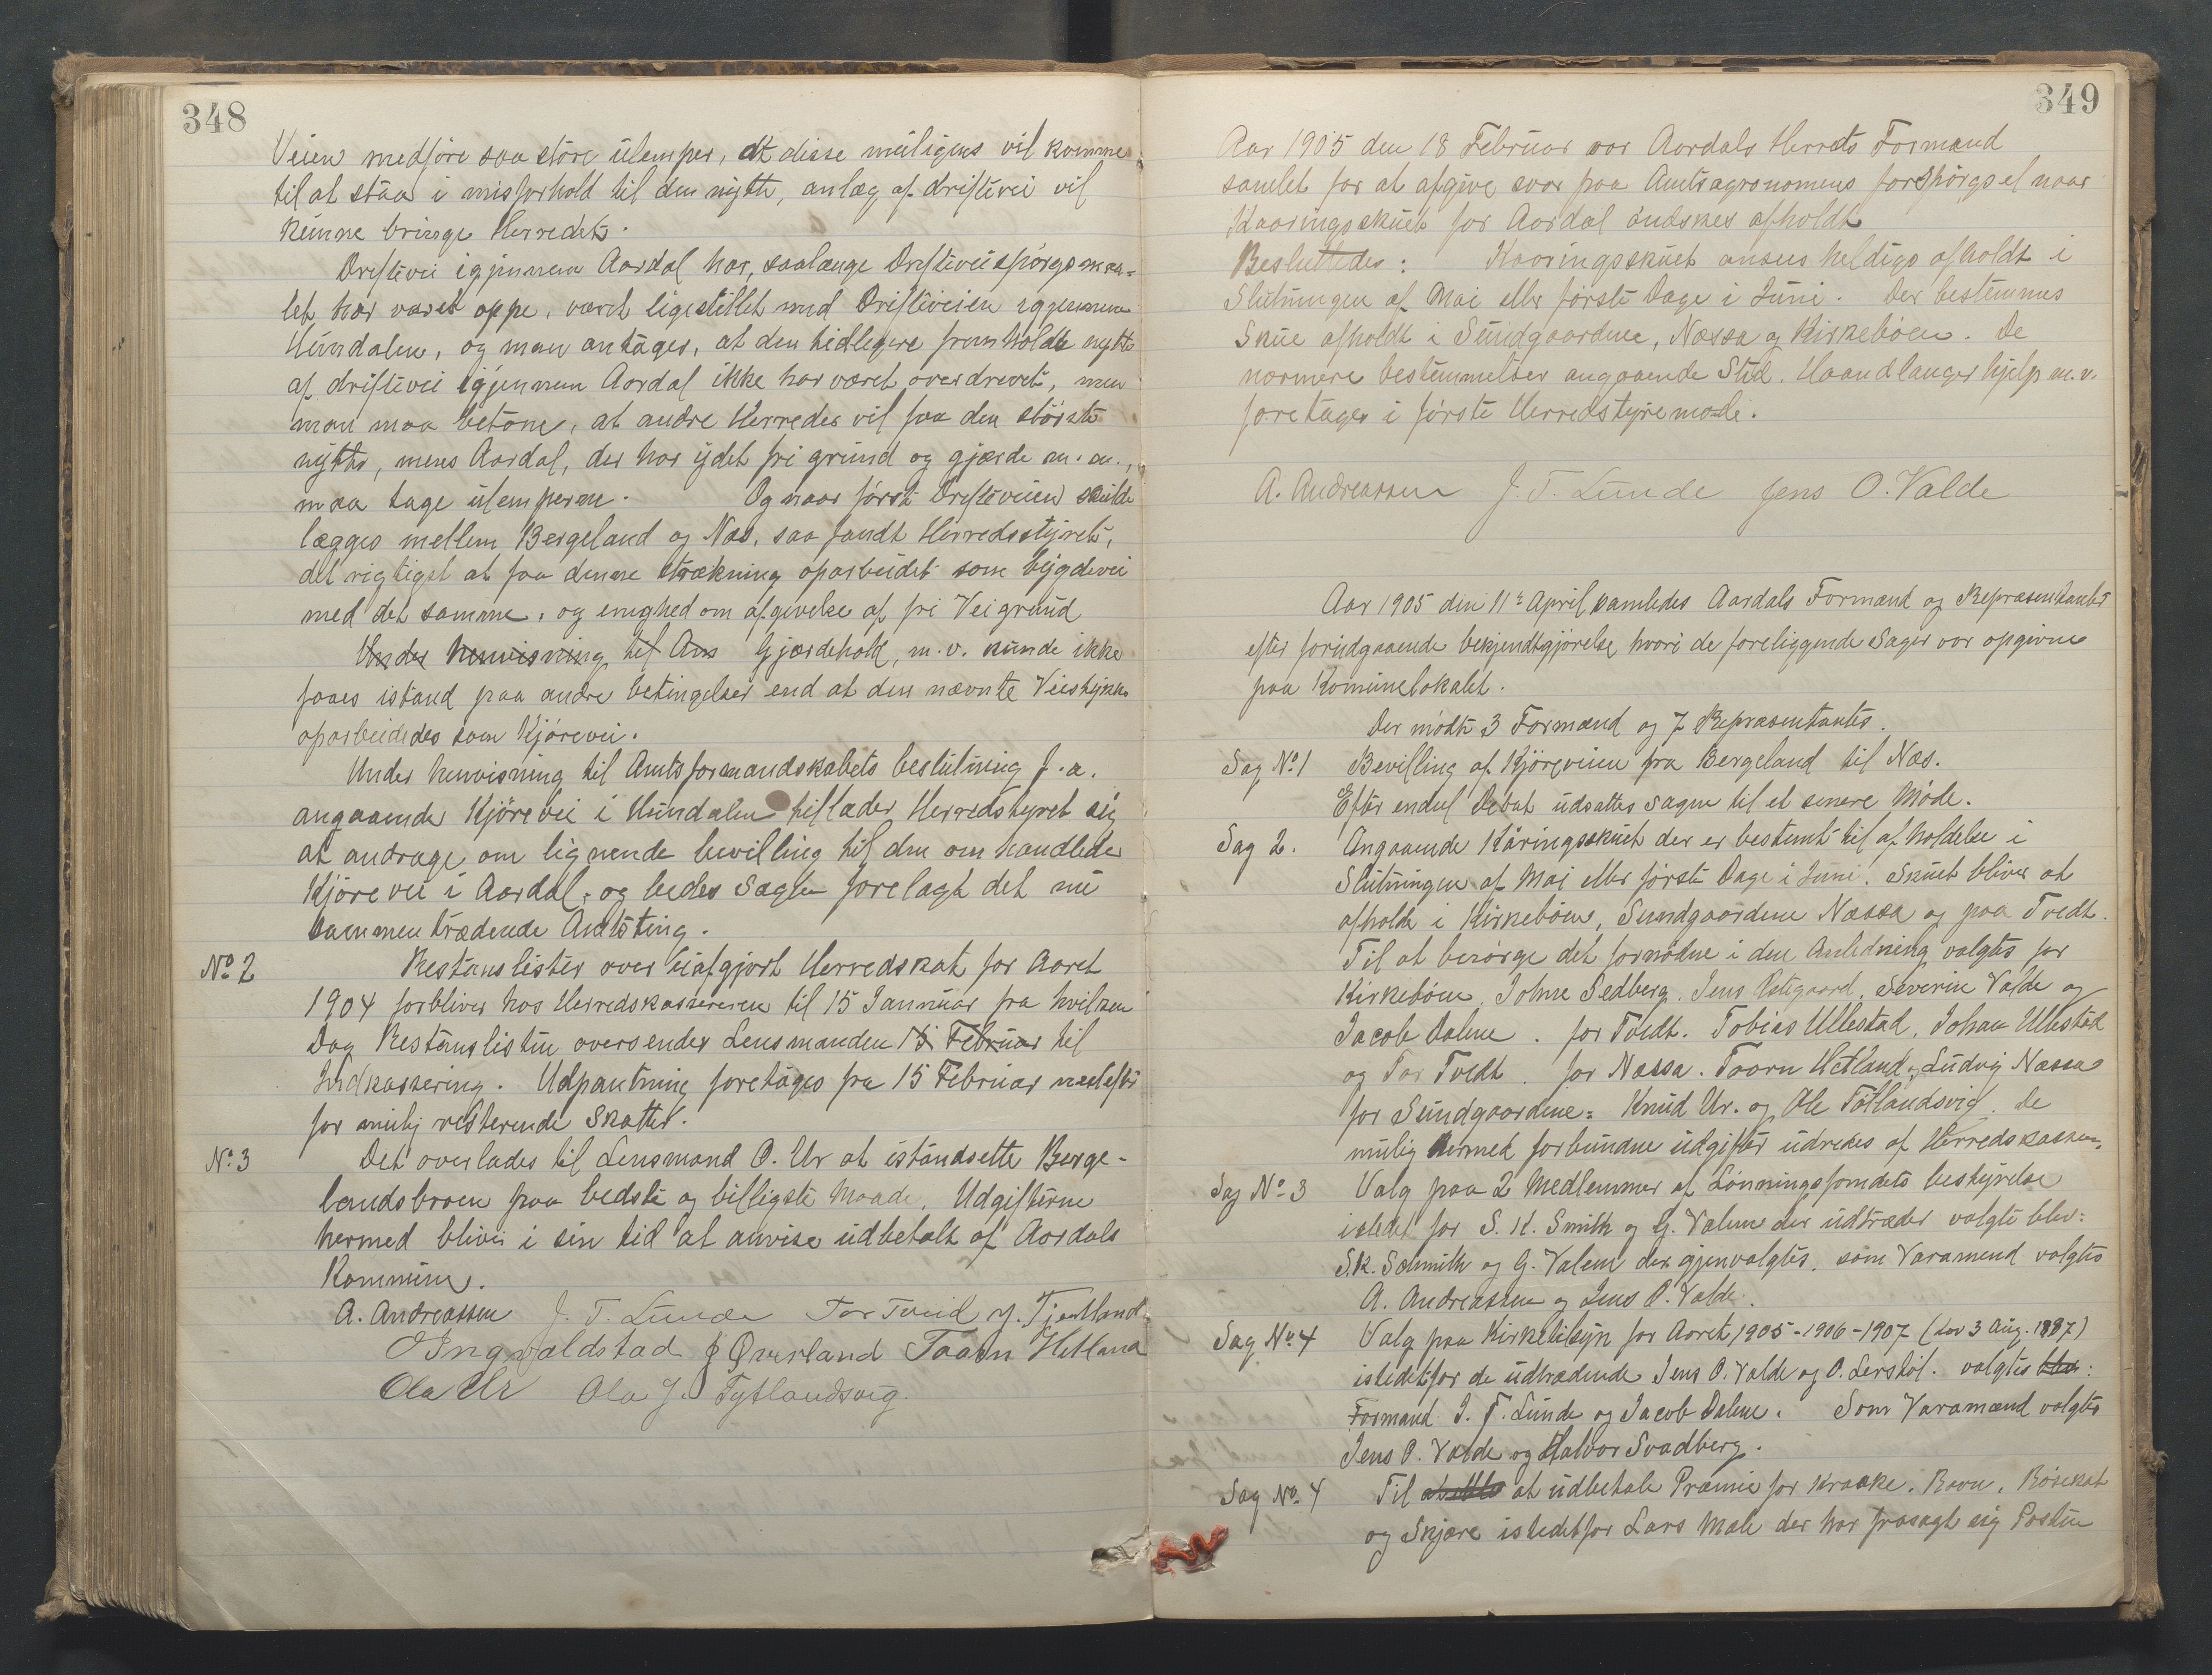 348
Veien medføre saa store ulemper, at disse muligens vil komme
til at staa i misforhold til den nytte, anlæg af driftevei vil
kunne bringe Herredet.
Driftevei igjennem Aardal har, saalænge Drifteveispørgsmaa-
let har været oppe, været ligestillet med Drifteveien iggjennem
Hundalen, og man antager, at den tidligere fremholdte nytte
af driftevei igjennem Aardal ikke har været overdrevet, men
man maa betone, at andre Herreder vil faa den største
nytte, mens Aardal, der har ydet fri grund og gjærde m. m.,
maa tage ulemperne. Og naar først Drifteveien skulde
lægges mellem Bergeland og Nes, saa fandt Herredsstyret,
det rigtigst at faa denne strækning oparbeidet som bygdevei
med det samme, og enighed om afgivelse af fri Veigrund
Under henvisning til Am Gjærdehold, m. v. kunde ikke
faaes istand paa andre betingelser end at den nævnte Veistykke
oparbeidedes som Kjørevei.
Under henvisning til Amtsformandskabets beslutning f. a.
angaaende Kjørevei i Hundalen tillader Herredstyret sig
at andrage om lignende bevilling til den om handlede
Kjørevei i Aardal, og bedes Sagen forelagt det nu
sammentrædende Amtsting.
No 2 Restanslister over uafgjort Herredskat for Aaret
1904 forbliver hos Herredskassereren til 15 Januar fra hvilken
Dag Restanslisten oversendes Lensmanden 15 Februar til
Indkassering. Udpantning foretages fra 15 Februar næstefter
for mulig resterende Skatter.
No 3 Det overlades til Lensmand O. Ur at istandsette Berge-
landsbroen paa bedste og billigste Maade. Udgifterne
hermed bliver i sin tid at anvise udbetalt af Aardals
Kommune.
A. Andreassen J. T. Lunde Tor Tveid M. Tjentland
O Ingvaldstad J Øverland Taarn Hetland
Ola Ur Ola J. Tytlandsvig.
349
Aar 1905 den 18 Februar var Aardals Herreds Formænd
samlet for at afgive svar paa Amtsagronomens forspørgsel naar
Kaaringsskuet for Aardal øndskes afholdt
Besluttedes: Kaaringsskuet ansees heldigs afholdt i
Slutningen af Mai eller første Dage i Juni. Der bestemmes
Skue afholdt i Sundgaardene, Næssa og Kirkebøen. De
nærmere bestemmelser angaaende Sted, Haandlanger hjelp m. v.
foretages i første Herredstyremøde.
A. Andreassen J. T. Lunde Jens O. Valde
Aar 1905 den 11te April samledes Aardals Formænd og Repræsentanter
efter forudgaaende bekjendtgjørelse hvori de foreliggende Sager var opgivne
paa Komunelokalet.
Der mødte 3 Formænd og 7 Repræsentanter.
Sag No 1 Bevilling af Kjøreveien fra Bergeland til Næs.
Efter endel Debat udsattes sagen til et senere Møde.
Sag 2. Angaaende Kåringsskuet der er bestemt til afholdelse i
Slutningen af Maj eller første Dage i Juni. Skuet bliver at
afholde i Kirkebøen, Sundgaardene Næssa og paa Tvedt.
Til at besørge det fornødne i den Anledning valgtes for
Kirkebøen, Johne Sedberg, Jens Østigaard, Severin Valde og
Jacob Dalene. for Tvedt. Tobias Ullestad, Johan Ullestad
og Tor Tvedt. for Næssa. Taarn Hetland, Ludvig Næssa
for Sundgaardene: Knud Ur. og Ole Tøtlandsvig. De
mulig hermed forbundne udgifter udredes af Herredskassen.
Sag No 3 Valg paa 2 Medlemmer af Lønningsfondets bestyrelse
istedet for S. K. Smith og G. Valene der udtræder valgte blev:
S. K. Schmith og G. Valene der gjenvalgtes, som Varamend valgtes
A. Andreassen og Jens O. Valde.
Sag No 4 Valg paa Kirketilsyn for Aaret 1905-1906-1907 (Lov 3 Aug. 1897)
istedetfor de udtrædende Jens O. Valde og O. Lerstøl. valgtes blev:
Formand J. T. Lunde og Jacob Dalene. Som Varamænd valgtes
Jens O. Valde og Halvor Svadberg.
Sag No 4 Til at udbetale Præmie for Kraake, Ravn, Røsekat
og Skjære istedetfor Lars Mæle der har frasagt sig Posten